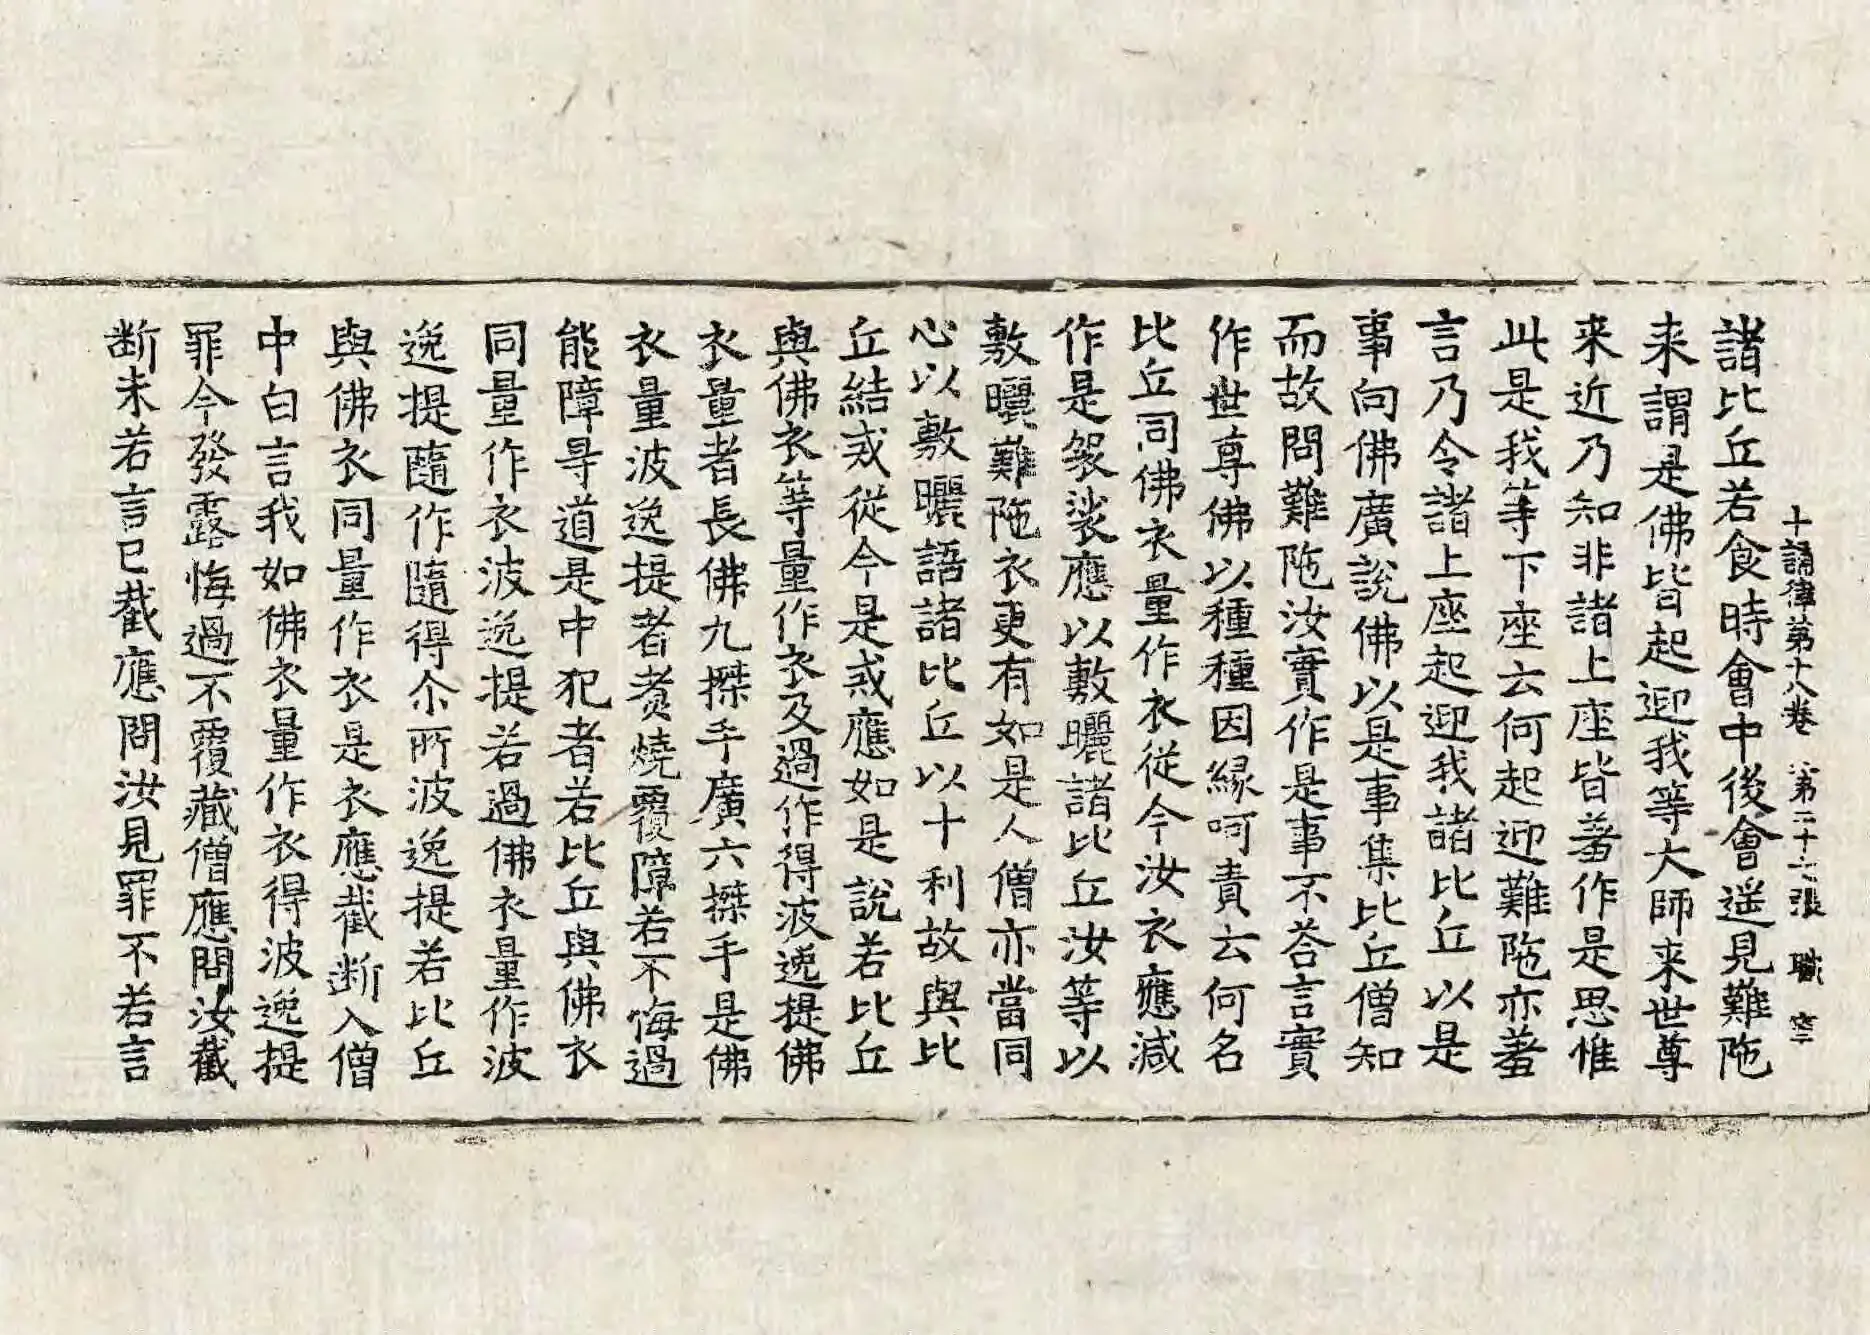 十誦律第十八卷 第二十七張 職
諸比丘若食時會中後會遥見難陁
来謂是佛皆起迎我等大師来世尊
来近乃知非諸上座皆着作是思惟
此是我等下座云何起迎難陁亦着
言乃令諸上座起迎我諸比丘以是
事向佛廣說佛以是事集比丘僧知
而故問難陁汝實作是事不荅言實
作世尊佛以種種因緣呵責云何名
比丘同佛衣量作衣從今汝衣應減
作是袈裟應以敷曬諸比丘汝等以
敷曬難陁衣更有如是人僧亦當同
心以敷曬語諸比丘以十利故與比
丘結戒從今是戒應如是說若比丘
與佛衣等量作衣及過作得波逸提佛
衣量者長佛九搩手廣六搩手是佛
衣量波逸提者煑燒覆障若不悔過
能障㝵道是中犯者若比丘與佛衣
同量作衣波逸提若過佛衣量作波
逸提隨作隨得尒所波逸提若比丘
與佛衣同量作衣是衣應截断入僧
中白言我如佛衣量作衣得波逸提
罪今發露悔過不覆藏僧應問汝截
断未若言已截應問汝見罪不若言